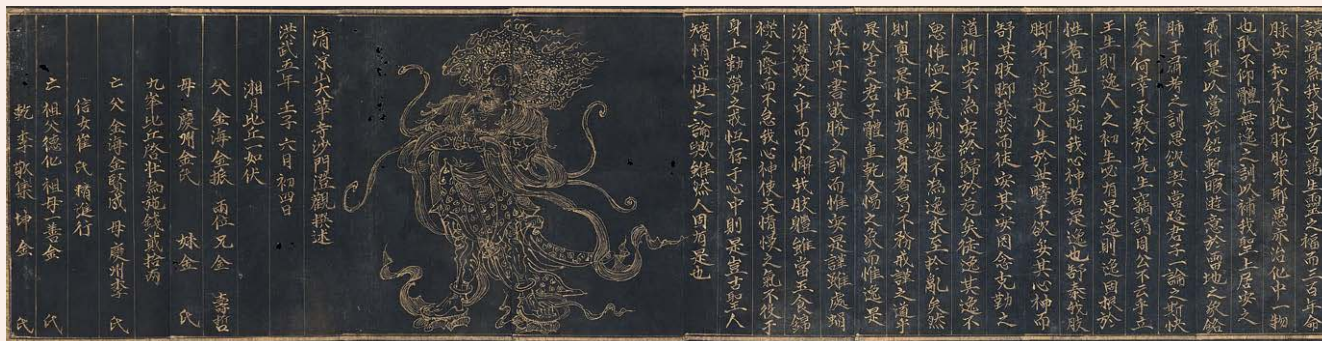 謨實爲我東方百萬生靈之福而三百年命
脉安和不從此胚胎來耶愚亦治化中一物
也敢不仰體無逸之訓以補我聖上居安之
戒耶是以當於銘暇遊意於兩地之家銘
肺于之訓思欲契當君子一論之頻快
矣今何幸承教於先生竊謂周公不云乎立
王生則逸人之初生必有是逸則逸固根於
性者也盖安帖我心神者是逸也舒泰我肢
脚者亦逸也人生於世時不欲安其心神而
舒其肢脚哉然而徒安其安因念克勤之
道則安不爲安終歸於危矣徒逸其逸不
思惟恒之義則逸不爲逸求至於亂矣然
則稟是性而有是身者曷不矜戒謹之道乎
是故古之君子體重乾久惕之象而惟逸是
戒法丹書敬勝之訓而惟安是謹雖處
之中而不懈我肢體雖當玉食錦
襟之際而不怠我心神使夫惰慢之氣不復于
身上勤勞之戒恒存于心中則是豈古聖人
矯情違性之論歟雖然人固有是也
清涼山大華寺沙門澄觀撰述
洪武五年 壬子 六日 初四日
湘月比丘一如伏
父 金海金振 兩位兄金 壽哲
母 慶州金氏 妹金 氏
九華比丘 施錢貳拾兩
亡父金海金賢成 母慶州李 氏
信女崔 氏 精進行
亡祖父德化 祖母一善金 氏
乾李敬集 坤金 氏